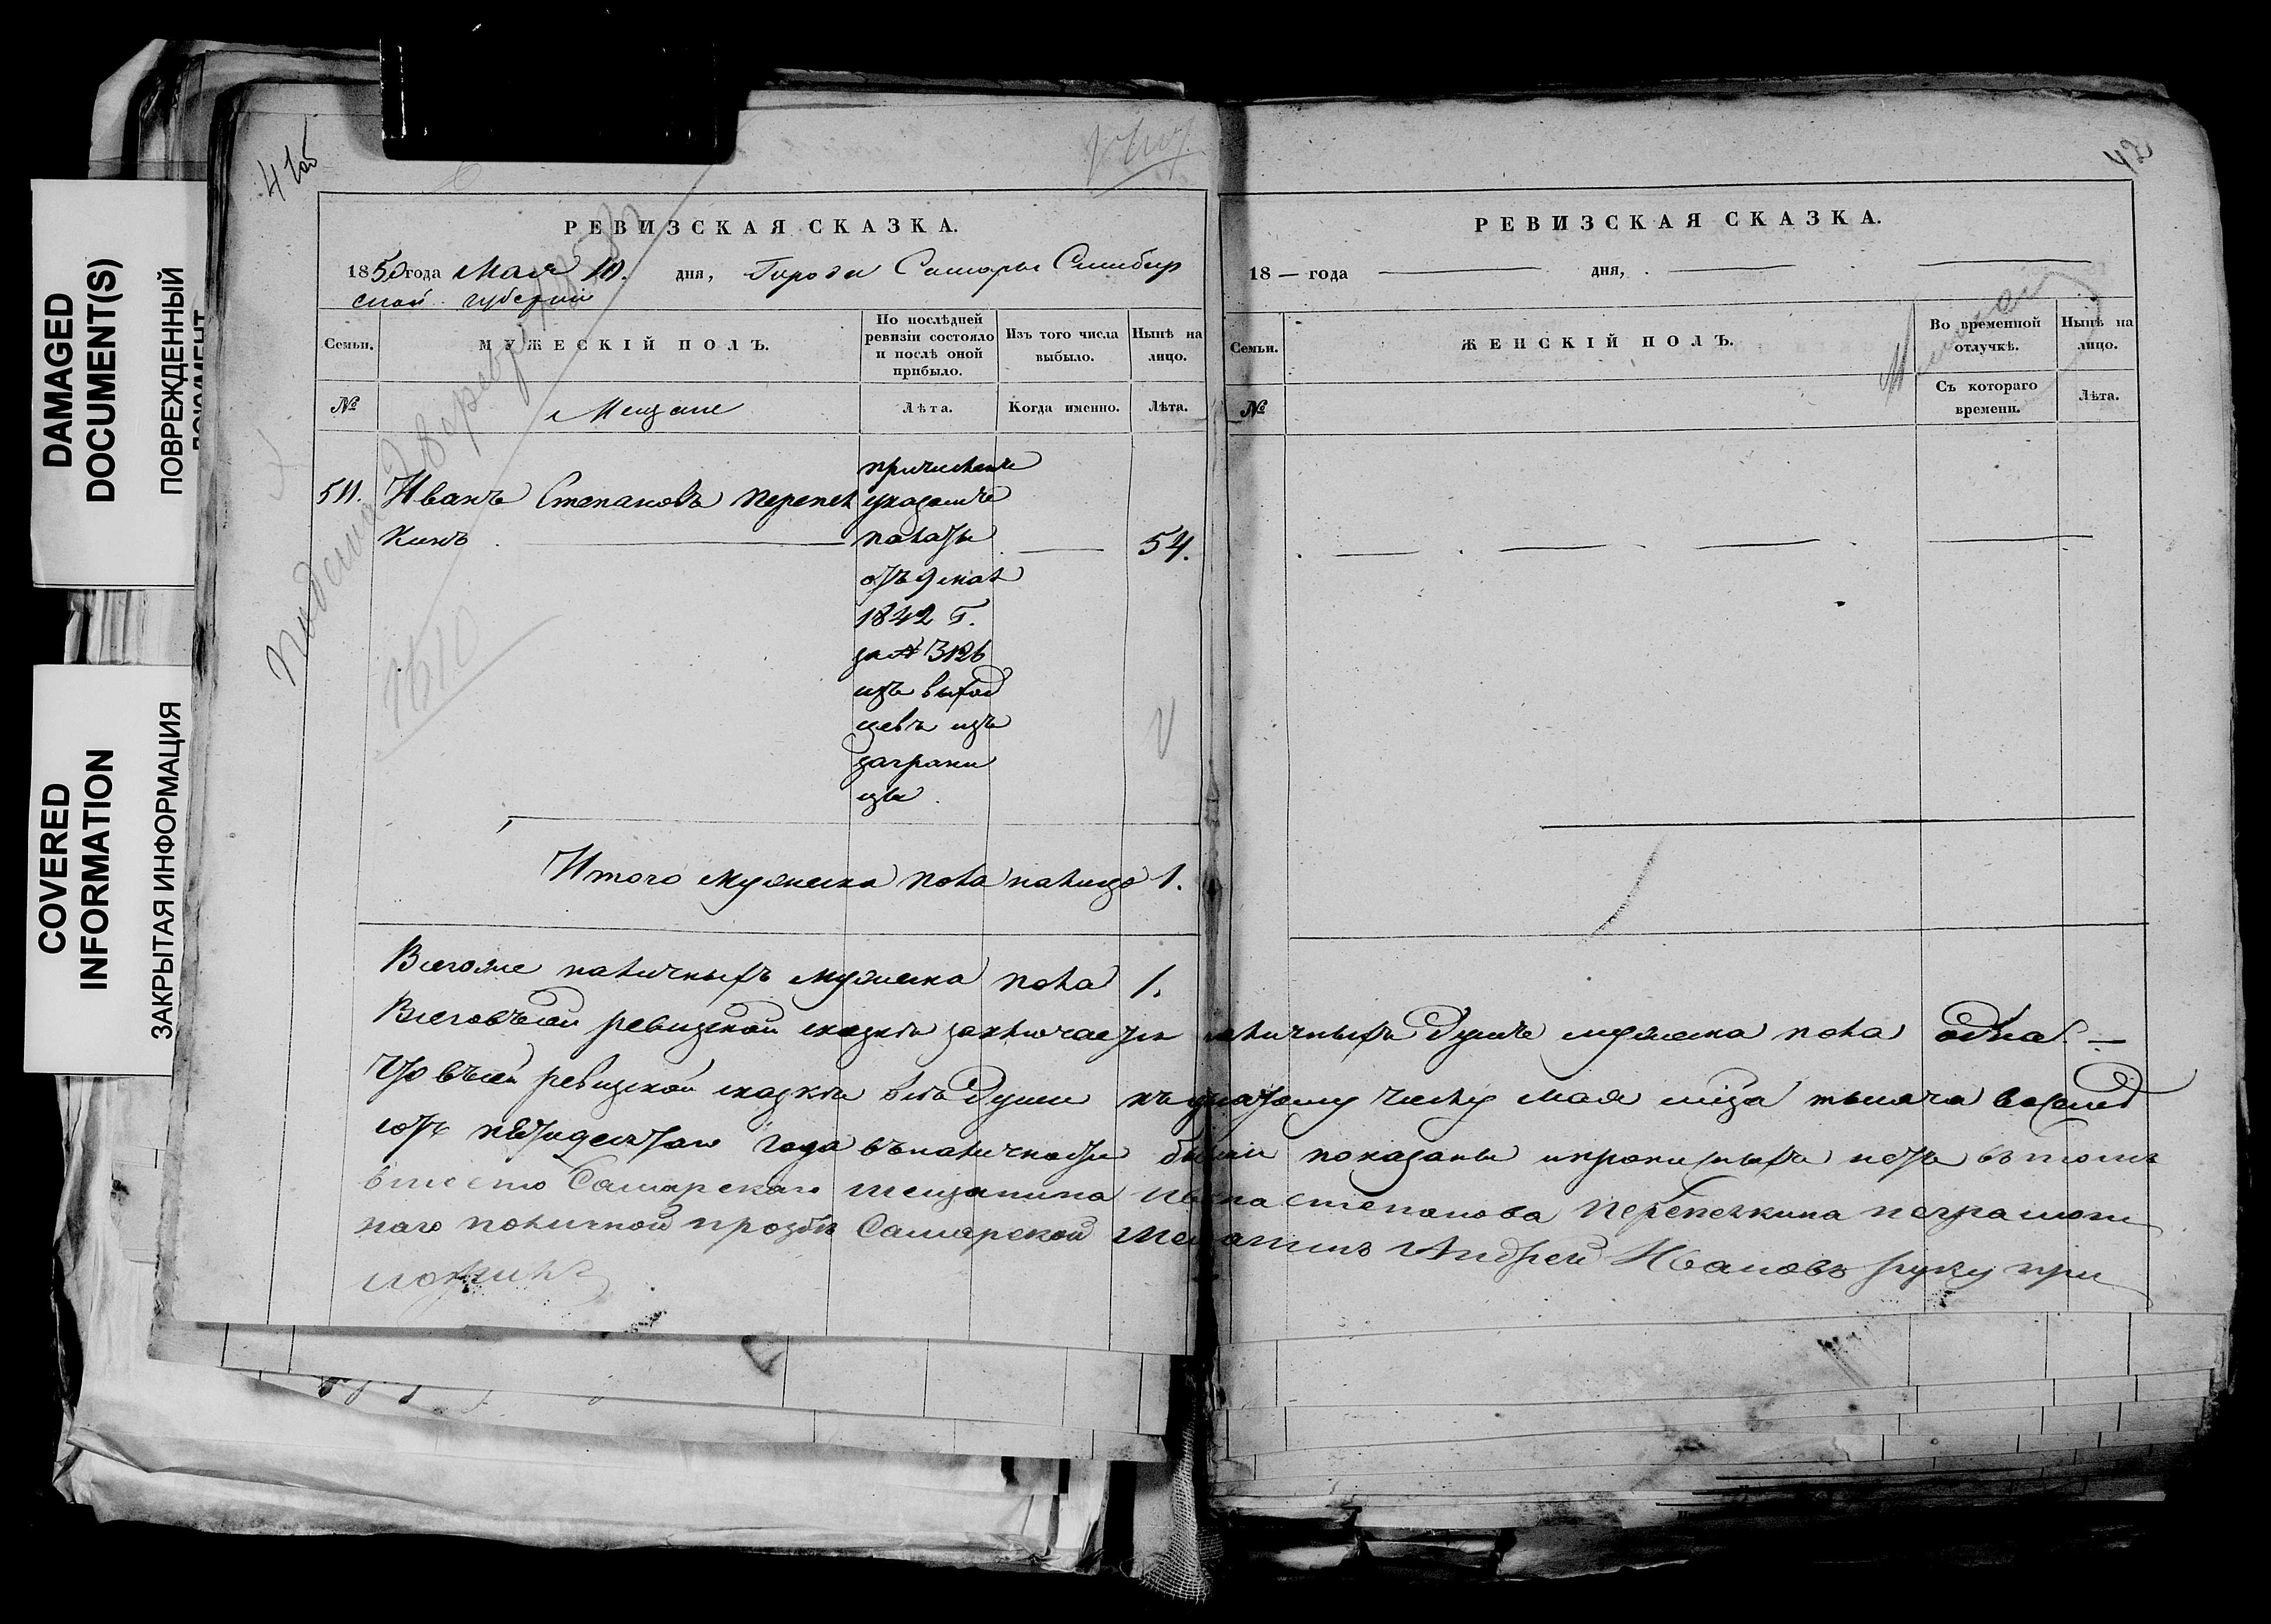 DAMAGED
DOCUMENT(S)
ПОВРЕЖДЕННЫЙ
COVERED
INFORMATION
ЗАКРЫТАЯ ИНФОРМАЦИЯ
41об
РЕВИЗСКАЯ СКАЗКА.
1850 года Мая 10. дня, Города Самары Симбир
ской губернии
Семьи.
МУЖЕСКІЙ ПОЛЪ.
По послѣдней
ревизіи состояло
и послѣ оной
прибыло.
Изъ того числа
выбыло.
Нынѣ на
лицо.
№
Мещане
Лѣта.
Когда именно.
Лѣта.
511. Иванъ Степановъ Перепел
кинъ 54.
причисленъ
указомъ
палаты
отъ 9 мая
1842 г.
за № 3126
изъ выход
цевъ изъ
заграни
цы.
1610
Итого мужеска пола налицо 1.
Всегоже наличныхъ мужеска пола 1.
42
РЕВИЗСКАЯ СКАЗКА.
18 — года дня,
Семьи.
ЖЕНСКІЙ ПОЛЪ.
Во временной
отлучкѣ.
Нынѣ на
лицо.
№
Съ котораго
времени.
Лѣта.
Всеговъсей ревизской сказкѣ заключается наличныхъ душъ мужеска пола одна. —
Что въсей ревизской сказкѣ всѣ души къ десятому числу мая мца тысяча восемь
сотъ пятидесятаго года въналичности бывшіе показаны ипрописныхъ нетъ въ томъ
вместо Самарскаго мещанина Ивана степанова Перепелкина неграмот
наго поличной прозбѣ Самарской мещанинъ Андрей Ивановъ руку при
ложилъ